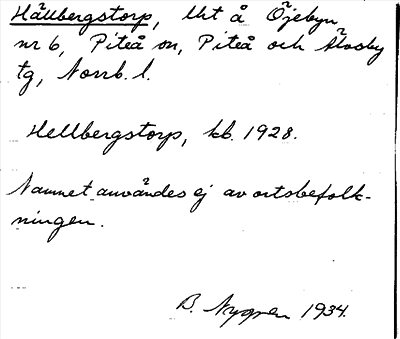 Hällbergstorp, lht å Öjebyn
nr 6, Piteå sn, Piteå och Älvsby
tg, Norrb. l.
Hellbergstorp, kb. 1928.
Namnet användes ej av ortsbefolk-
ningen.
B. Nygren 1934.